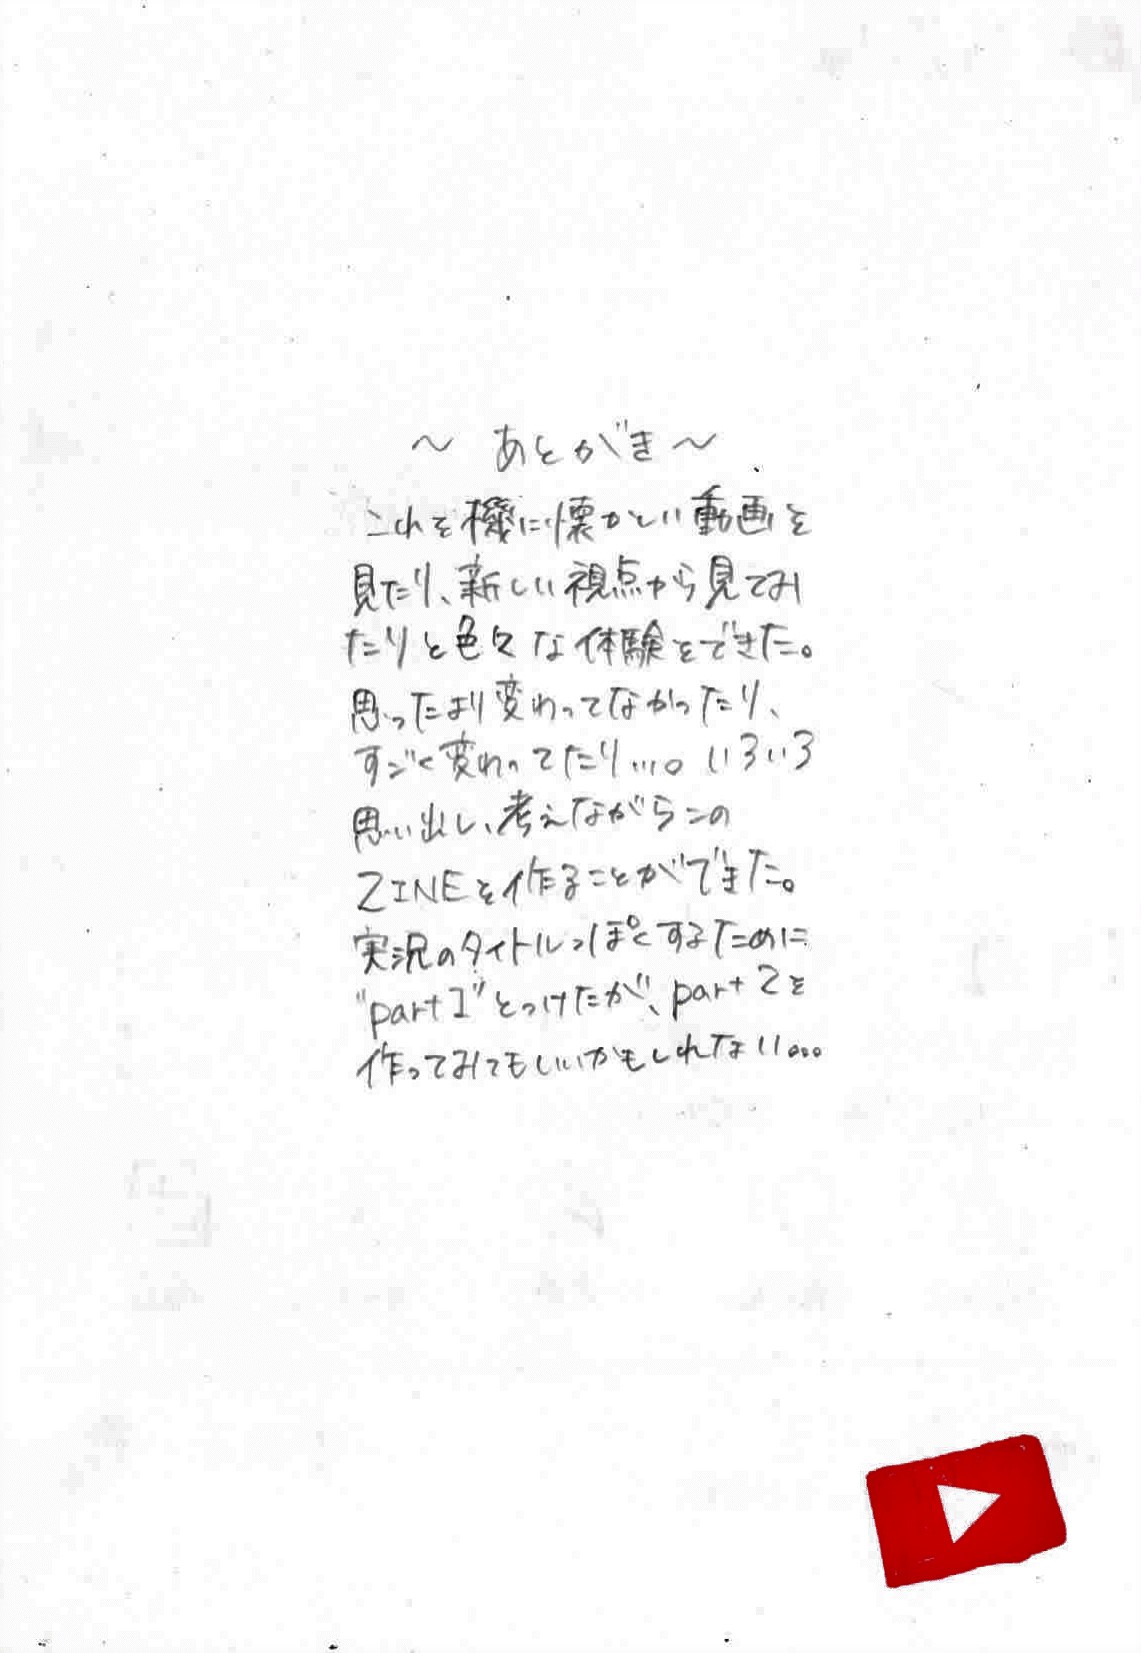 ～ あとがき ～
これを機に懐かしい動画を
見たり、新しい視点から見てみ
たりと色々な体験をできた。
思ったより変わってなかったり、
すごく変わってたり...。いろいろ
思い出し、考えながらこの
ZINEを作ることができた。
実況のタイトルっぽくするために
"part1"とつけたが、part2を
作ってみてもいいかもしれない...